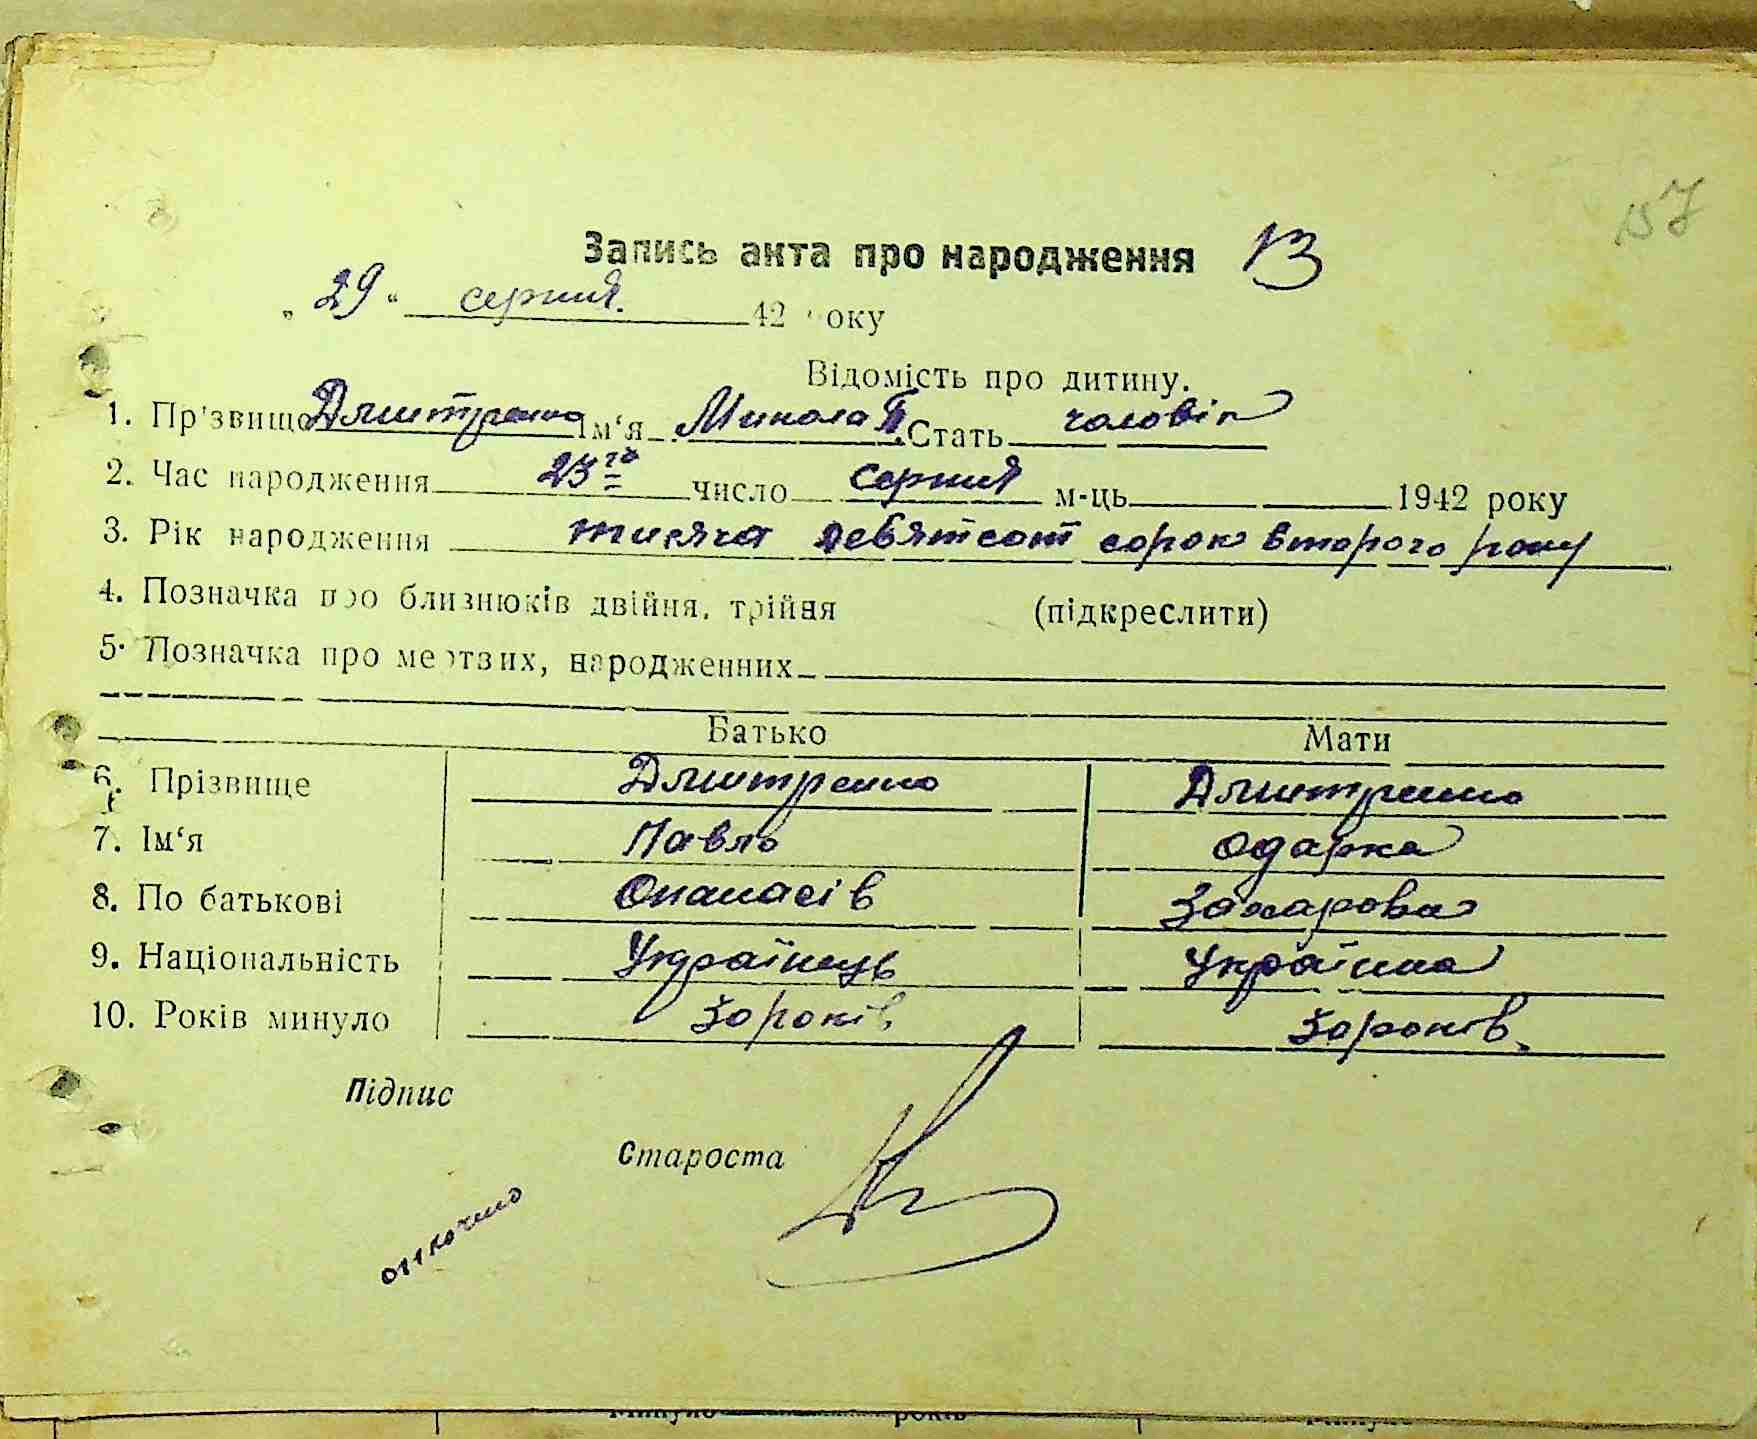 157
Запись акта про народження 13
„ 29 “ серпня. 42 року
Відомість про дитину.
1. Пр'звище Дмитренко Ім‘я Микола П. Стать чоловік
2. Час народження 23го число серпня м-ць 1942 року
3. Рік народження тисяча девятсот сорок второго року
4. Позначка про близнюків двійня, трійня (підкреслити)
5. Позначка про мертвих, народженних
Батько Мати
6. Прізвище Дмитренко Дмитренко
7. Ім‘я Павло Одарка
8. По батькові Опанасів Захарова
9. Національність Українець Українка
10. Років минуло 30 років 30 років.
Підпис
Староста
Минуло років Минуло